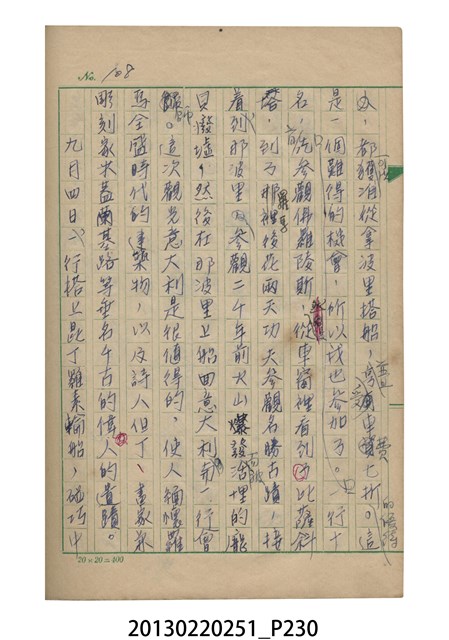 No. 108
火，都獲准從拿波里搭船，車費七折。這
是一個難得的機會，所以我也參加了。一行十
名，先參觀佛羅陵斯，從車窗裡看到比薩斜
塔，到了那裡後花兩天功夫參觀名勝古蹟，接
着到那波里，參觀二千年前火山爆發活埋的龐
貝廢墟，然後在那波里上船回意大利南，一行會
師。這次觀光意大利是很值得的，使人緬懷羅
馬全盛時代的建築物，以及詩人但丁、畫家米
彫刻家米蓋蘭基路等垂名千古的偉人的遺蹟。
九月四日，一行搭上昆丁羅素輸船，碰巧中
20×20=400
20130220251_P230